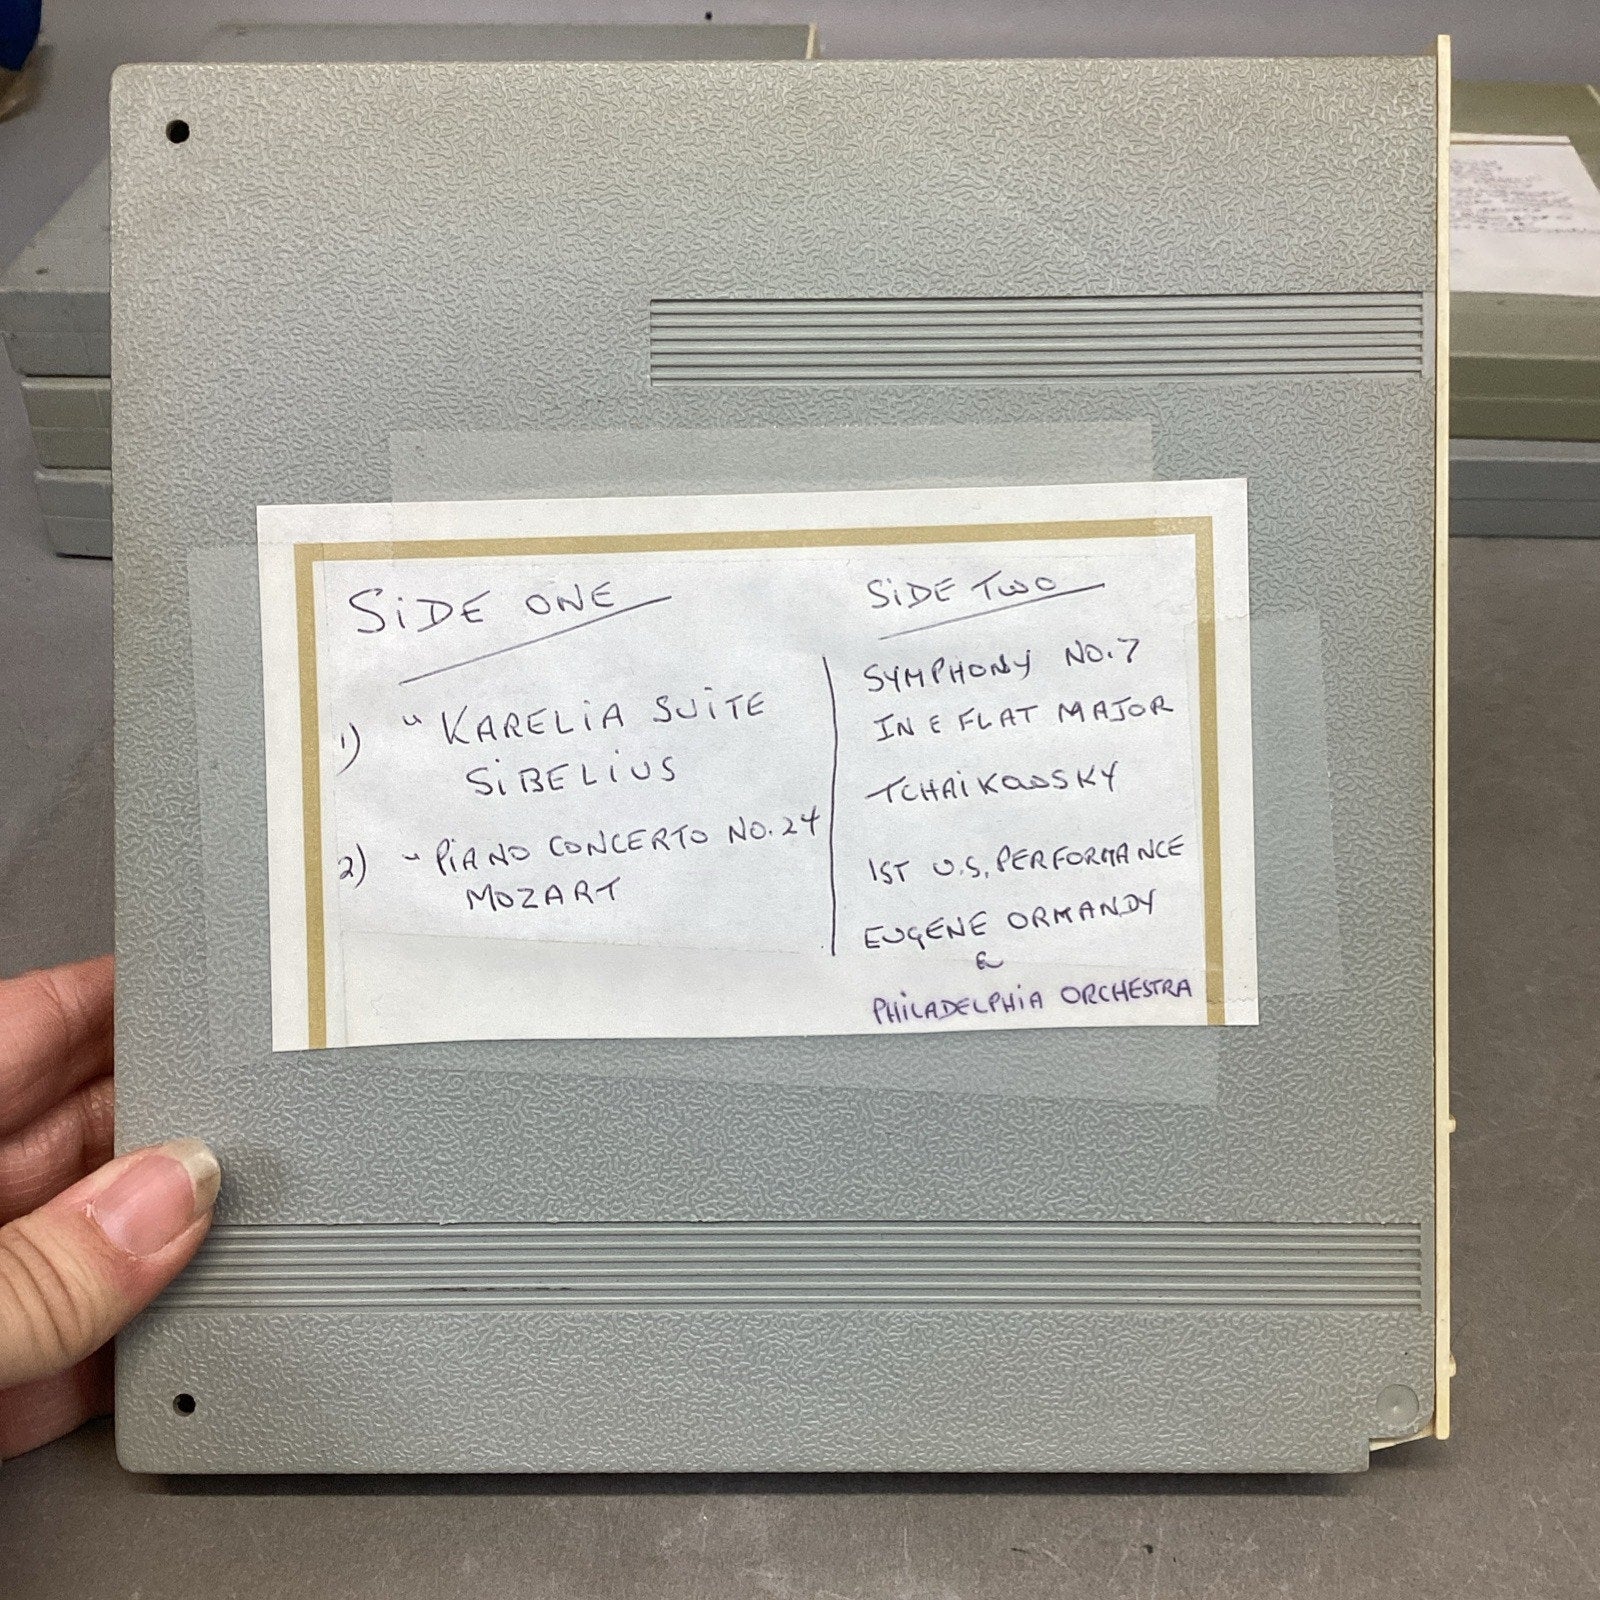 SIDE ONE
1) " KARELIA SUITE
SIBELIUS
2) " PIANO CONCERTO NO. 24
MOZART
SIDE TWO
SYMPHONY NO. 7
IN E FLAT MAJOR
TCHAIKOVSKY
1ST U.S. PERFORMANCE
EUGENE ORMANDY
&
PHILADELPHIA ORCHESTRA